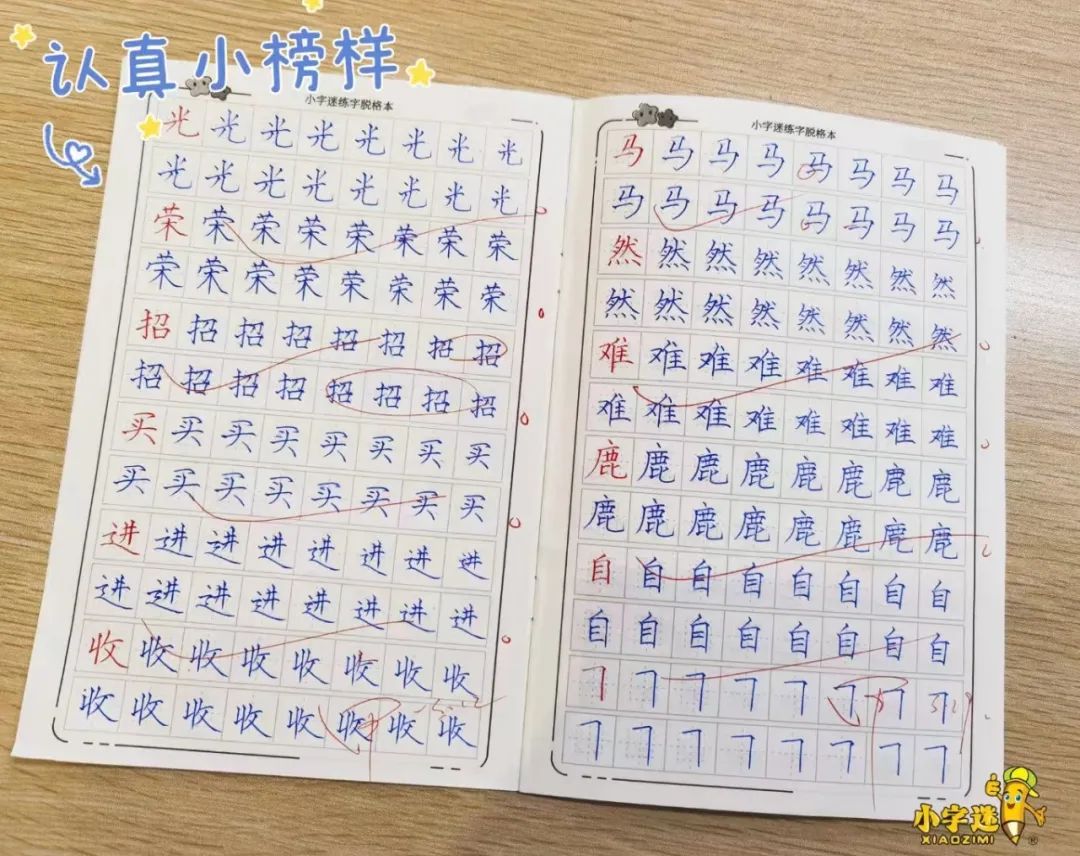 认真小榜样
小字迷练字脱格本
光光光光光光光光
光光光光光光光光
荣荣荣荣荣荣荣荣
荣荣荣荣荣荣荣荣
招招招招招招招招
招招招招招招招招
买买买买买买买买
买买买买买买买买
进进进进进进进进
进进进进进进进进
收收收收收收收收
收收收收收收收收
小字迷练字脱格本
马马马马马马马马
马马马马马马马马
然然然然然然然然
然然然然然然然然
难难难难难难难难
难难难难难难难难
鹿鹿鹿鹿鹿鹿鹿鹿
鹿鹿鹿鹿鹿鹿鹿鹿
自自自自自自自自
自自自自自自自自
小字迷
XIAOZIMI